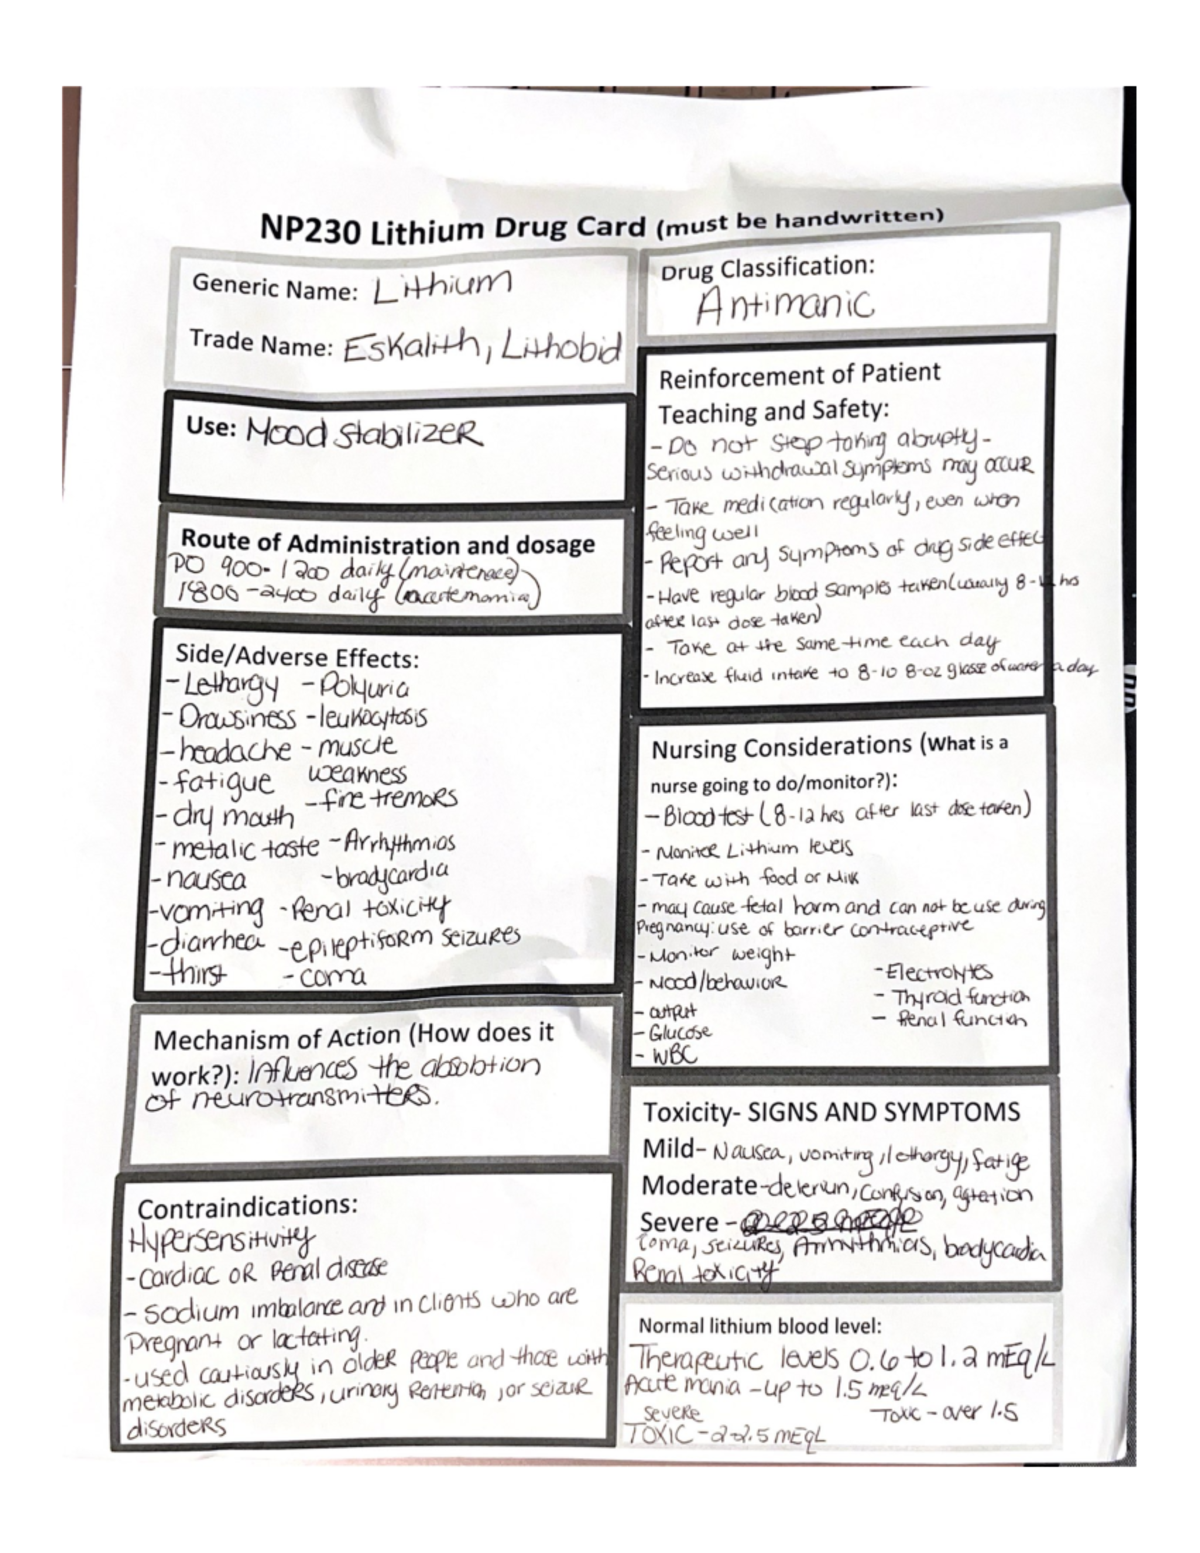 NP230 Lithium Drug Card (must be handwritten)
Generic Name: Lithium
Trade Name: Eskalith, Lithobid
Use: Mood stabilizer
Route of Administration and dosage
PO 900-1200 daily (maintenace)
1800-2400 daily (acute mania)
Side/Adverse Effects:
- Lethargy - Polyuria
- Drowsiness - leukocytosis
- headache - muscle
- fatigue weakness
- dry mouth - fine tremors
- metalic taste - Arrhythmias
- nausea - bradycardia
- vomiting - Renal toxicity
- diarrhea - epileptiform seizures
- thirst - coma
Mechanism of Action (How does it
work?): Influences the absobtion
of neurotransmitters.
Contraindications:
Hypersensitivity
- Cardiac OR Renal disease
- sodium imbalance and in clients who are
Pregnant or lactating.
- used cautiously in older people and those with
metabolic disorders, urinary Retention, or seizur
disorders
Drug Classification:
Antimanic
Reinforcement of Patient
Teaching and Safety:
- Do not stop taking abruptly -
serious withdrawal symptoms may occur
- Take medication regularly, even when
feeling well
- Report any symptoms of drug side effect
- Have regular blood samples taken (usually 8-12 hrs
after last dose taken)
- Take at the same time each day
- Increase fluid intake to 8-10 8-oz glasse of water a day
Nursing Considerations (What is a
nurse going to do/monitor?):
- Blood test (8-12 hrs after last dose taken)
- Monitor Lithium levels
- Take with food or Milk
- may cause fetal harm and can not be use during
Pregnancy: use of barrier contraceptive
- Monitor weight
- Mood/behavior - Electrolytes
- output - Thyroid function
- Glucose - Renal function
- WBC
Toxicity- SIGNS AND SYMPTOMS
Mild- Nausea, vomiting, lethargy, fatige
Moderate- confusion, agitation
Severe -
Coma, seizures, Arrhythmias, bradycardia
Renal toxicity
Normal lithium blood level:
Therapeutic levels 0.6 to 1.2 mEq/L
Acute mania - up to 1.5 meq/L
severe Toxic - over 1.5
TOXIC - 2-2.5 mEqL